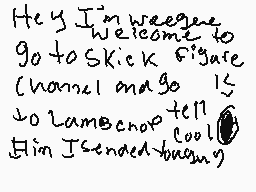 Hey I'm weegee
welcome to
go to skick figure
channel and go is
to Lambchop tell
cool
Him I sended